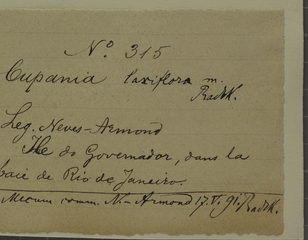 No. 315
Cupania laxiflora m.
Radlk.
Leg. Neves-Armond
Ile do Governador, dans la
baie de Rio de Janeiro.
Mecum comm. N.-Armond 17.V.91. Radlk.